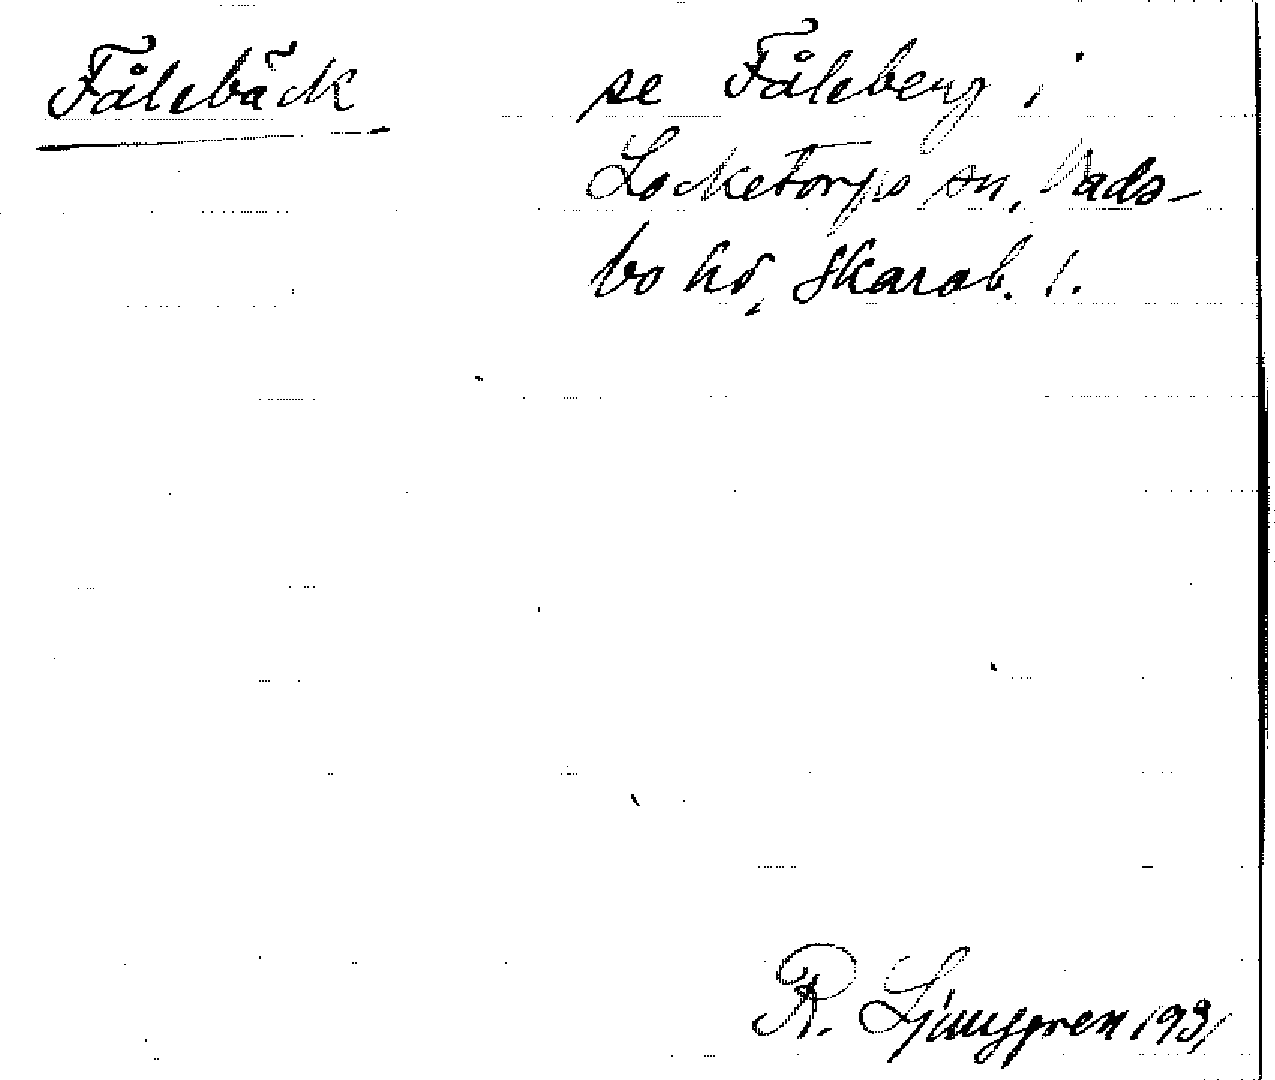 Fålebäck se Fåleberg i
Locketorps sn, Vads-
bo hd, Skarab. l.
R. Ljunggren 1931